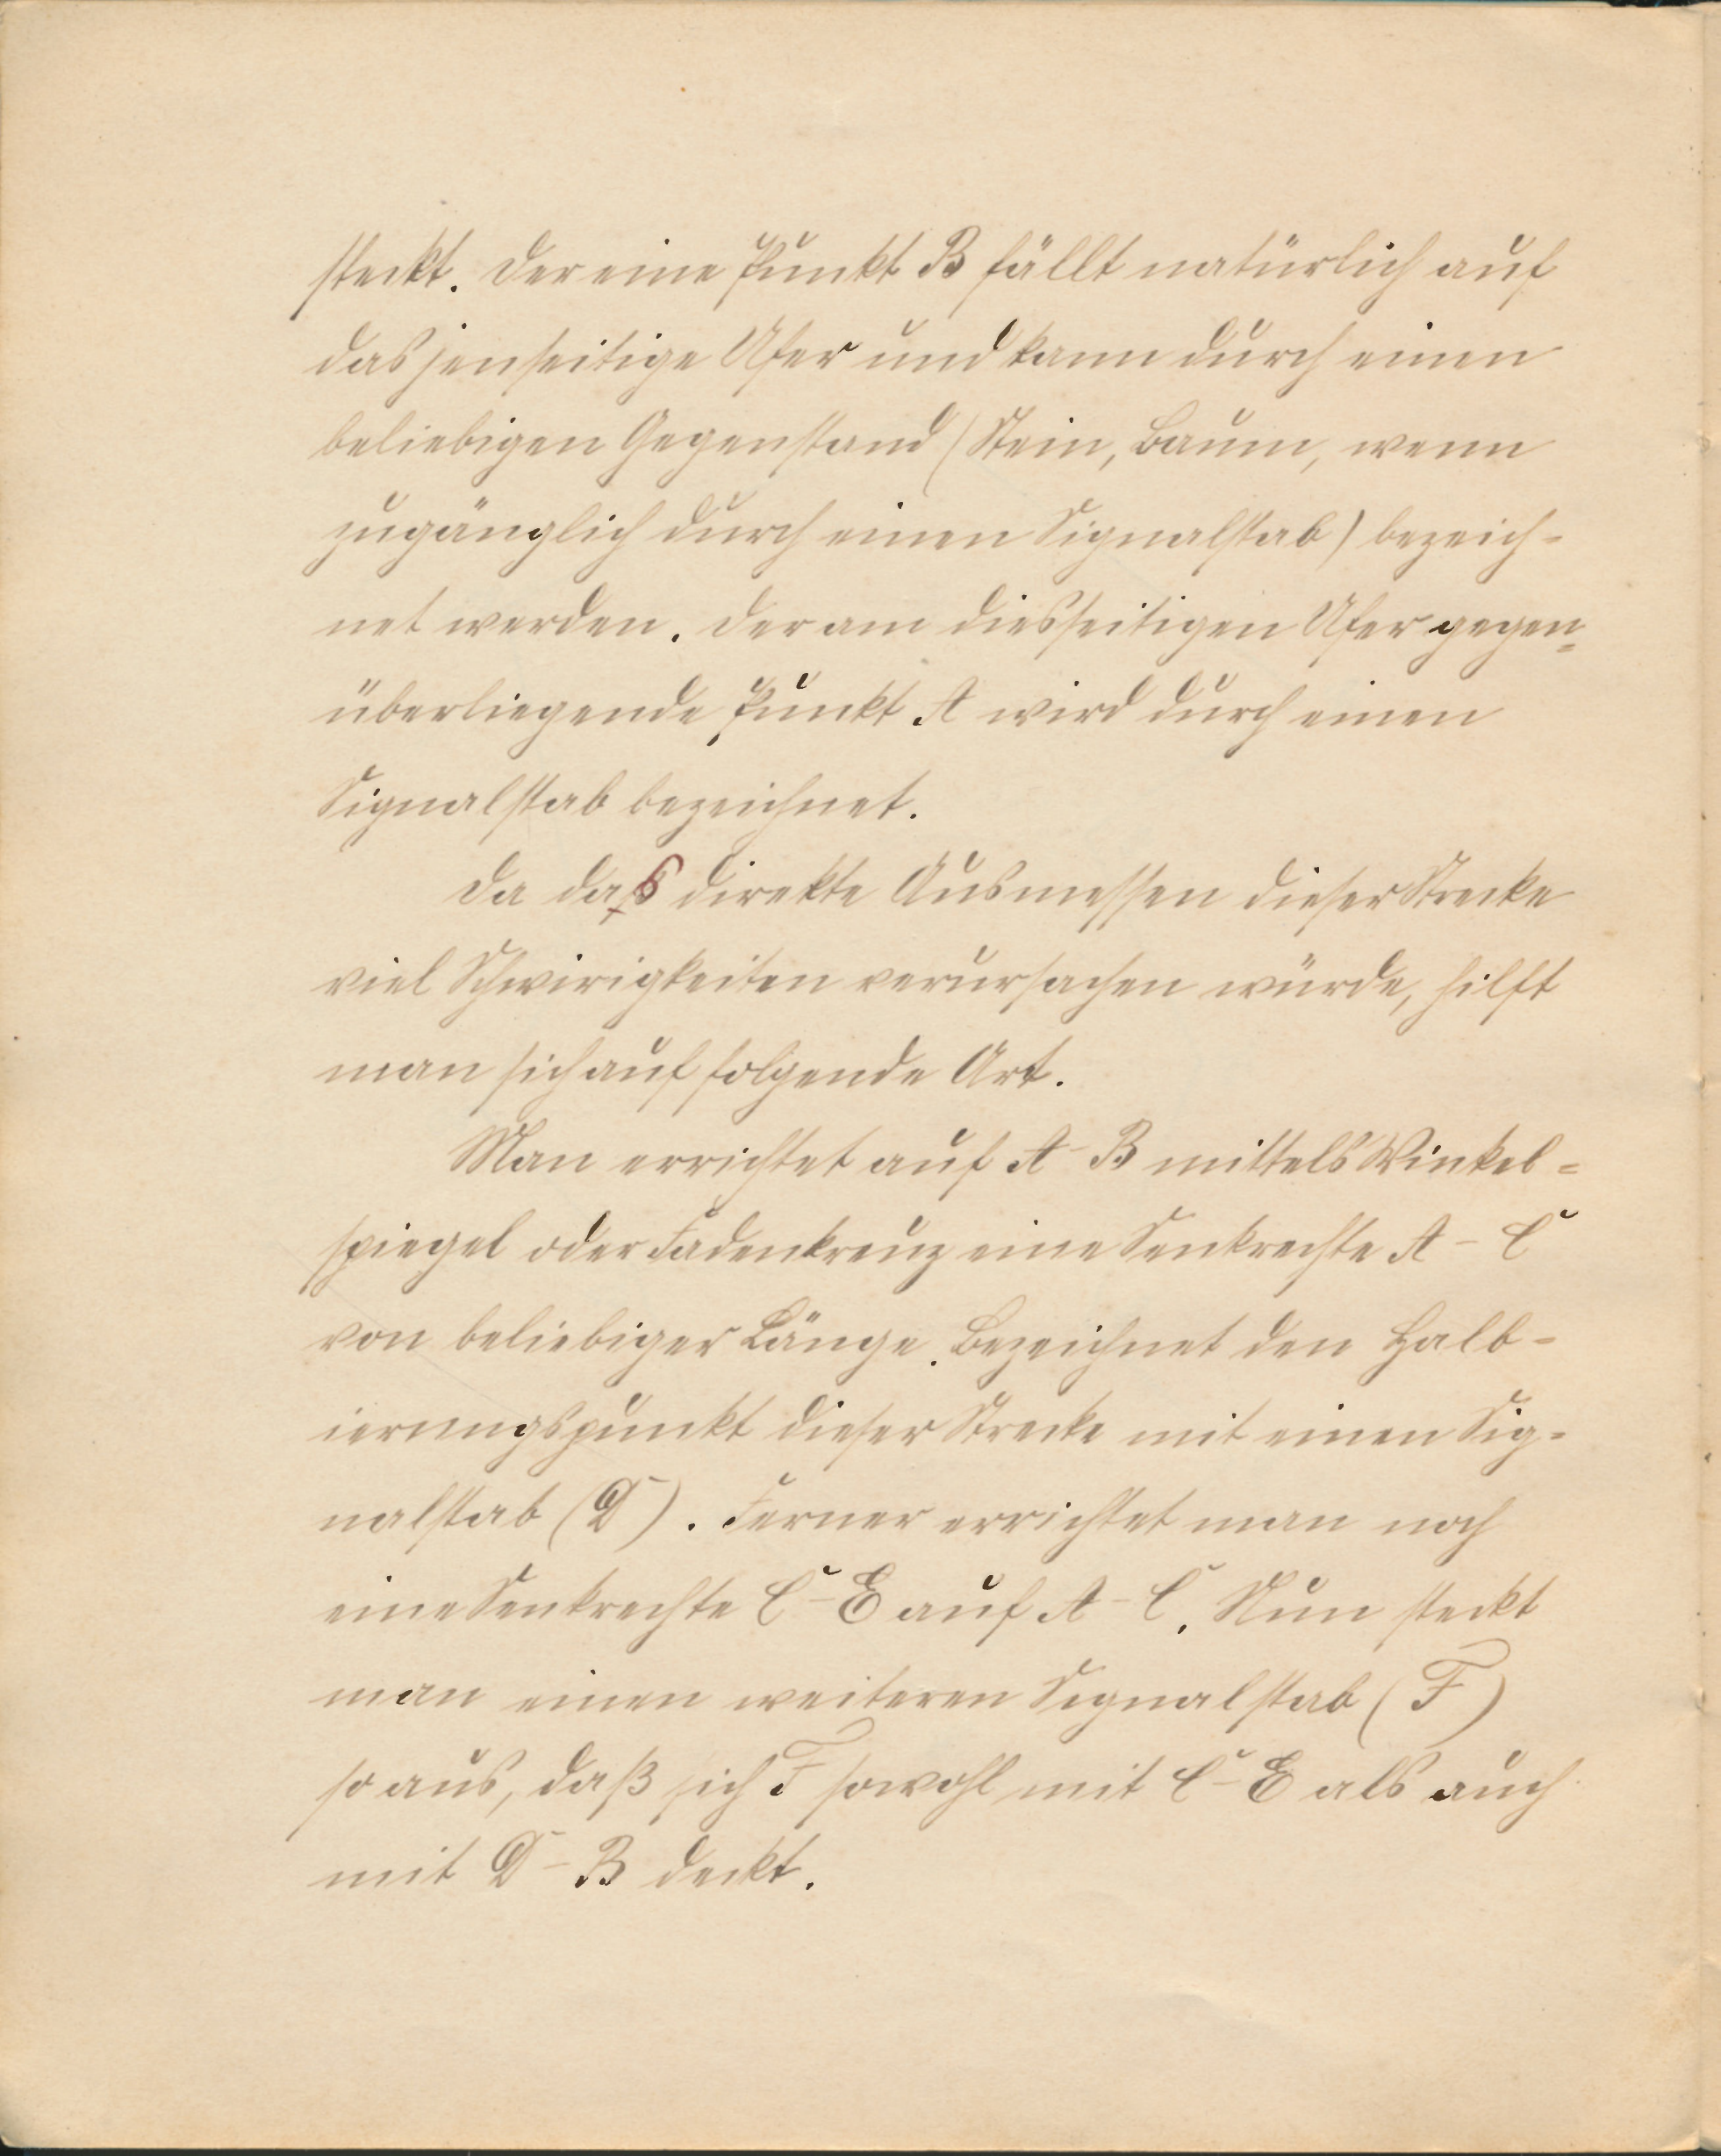 steckt. Der eine Punkt B fällt natürlich auf
das jenseitige Ufer und kann durch einen
beliebigen Gegenstand (Stein, Baum, wenn
zugänglich durch einen Signalstab) bezeich-
net werden. Der am diesseitigen Ufer gegen-
überliegende Punkt A wird durch einen
Signalstab bezeichnet.
Da das direkte Ausmessen dieser Strecke
viel Schwirigkeiten verursachen würde, hilft
man sich auf folgende Art.
Man errichtet auf A-B mittels Winkel-
spiegel oder Fadenkreuz eine Senkrechte A-C
von beliebiger Länge. Bezeichnet den Halb-
ierungspunkt dieser Strecke mit einen Sig-
nalstab (D). Ferner errichtet man noch
eine Senkrechte C-E auf A-C. Nun steckt
man einen weiteren Signalstab (F)
so aus, daß sich F sowohl mit C-E als auch
mit D-B deckt.